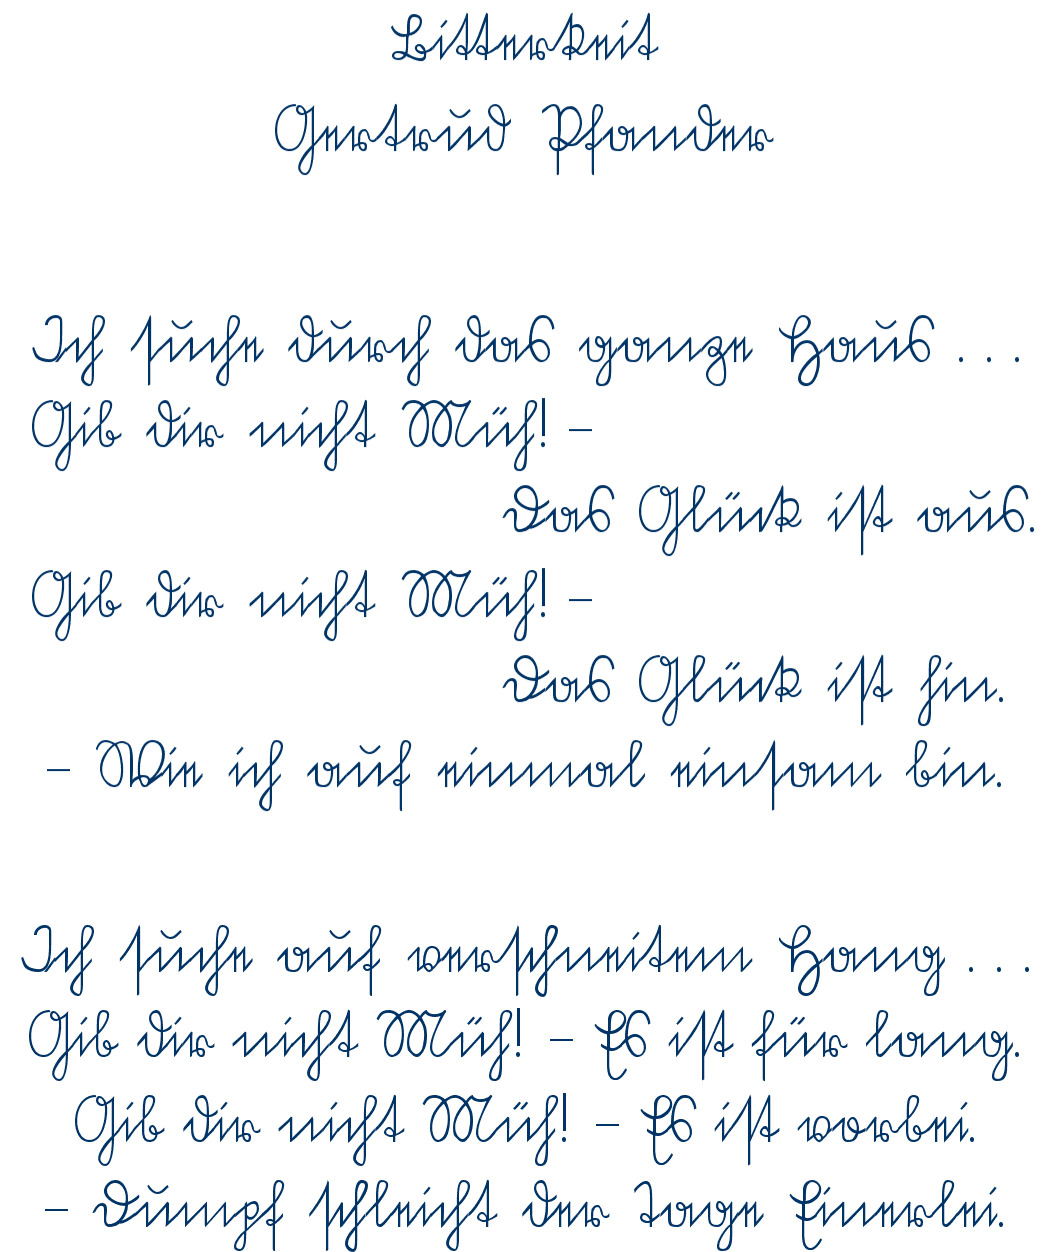 Bitterkeit
Gertrud Pfander
Ich suche durch das ganze Haus . . .
Gib dir nicht Müh! –
Das Glück ist aus.
Gib dir nicht Müh! –
Das Glück ist hin.
– Wie ich auf einmal einsam bin.
Ich suche auf verschneitem Hang . . .
Gib dir nicht Müh! – Es ist für lang.
Gib dir nicht Müh! – Es ist vorbei.
– Dumpf schleicht der Tage Einerlei.